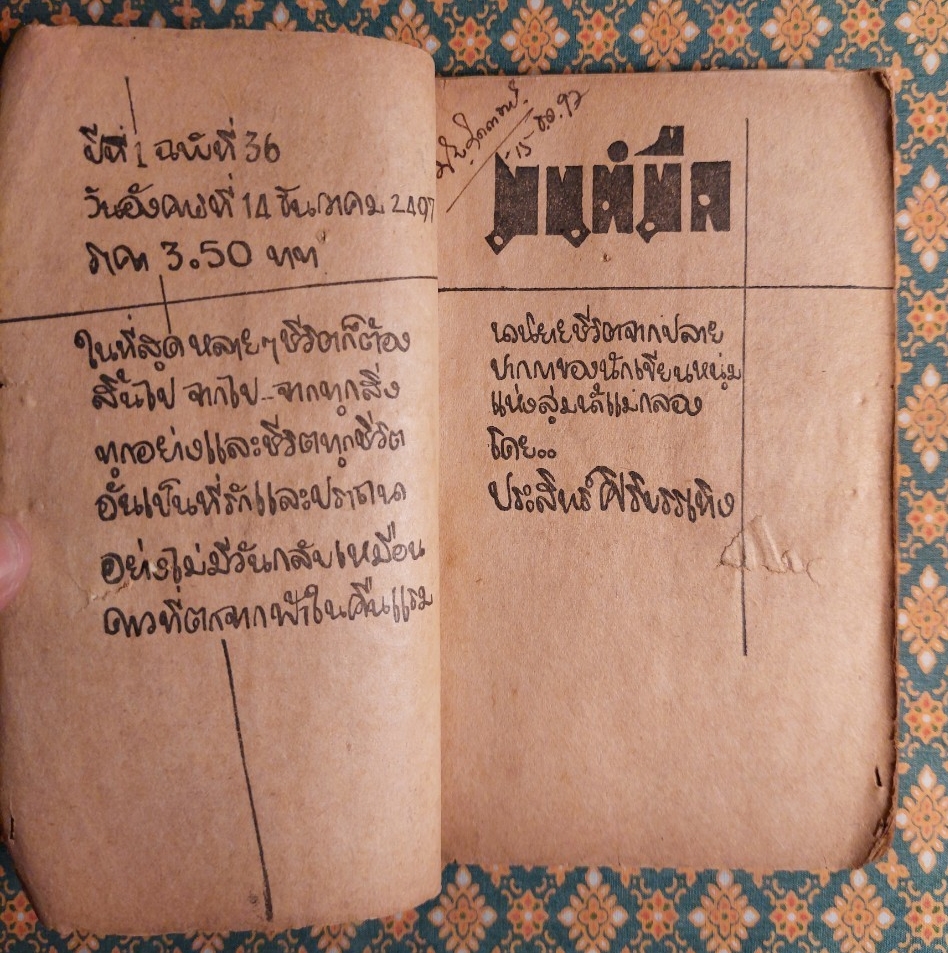 ปีที่ 1 ฉบับที่ 36
วันอังคารที่ 14 ธันวาคม 2497
ราคา 3.50 บาท
ในที่สุด หลายๆชีวิตก็ต้อง
สิ้นไป จากไป..จากทุกสิ่ง
ทุกอย่างและชีวิตทุกชีวิต
อันเป็นที่รักและปรารถนา
อย่างไม่มีวันกลับเหมือน
ดาวที่ตกจากฟ้าในคืนแรม
15 ธ.ค. 97
มนต์มืด
นวนิยายชีวิตจากปลาย
ปากกาของนักเขียนหนุ่ม
แห่งลุ่มน้ำแม่กลอง
โดย..
ประสิทธิ์ ศิริบรรเทิง